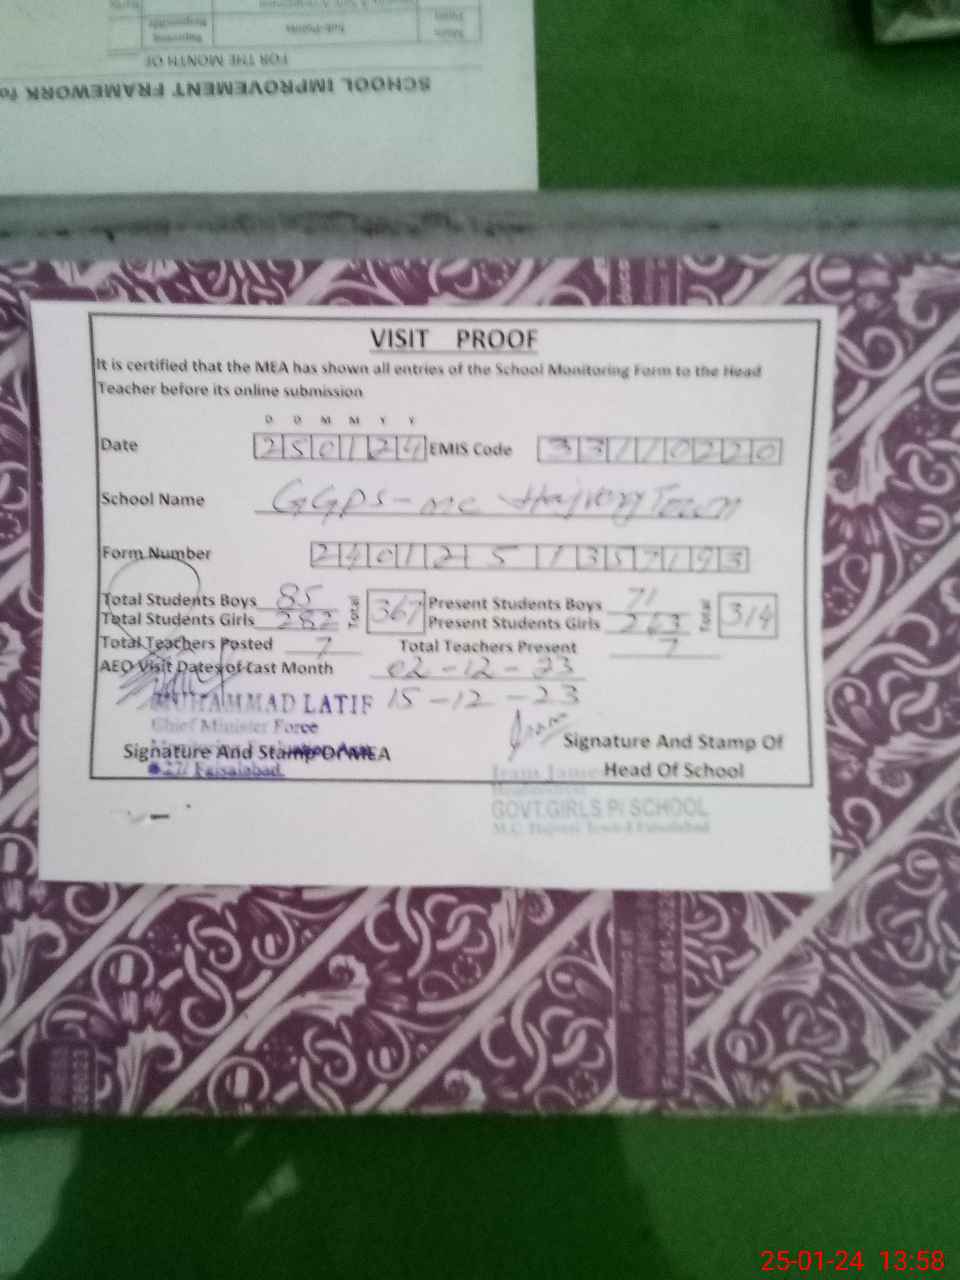 SCHOOL IMPROVEMENT FRAMEWORK
FOR THE MONTH OF
VISIT PROOF
It is certified that the MEA has shown all entries of the School Monitoring Form to the Head
Teacher before its online submission
D D M M Y Y
Date 250124 EMIS Code 33110220
School Name GGPS-MC Hajvery Town
Form Number 2401251357193
Total Students Boys 85 Total 367 Present Students Boys 71 Total 314
Total Students Girls 282 Present Students Girls 243
Total Teachers Posted 7 Total Teachers Present 7
AEO Visit Dates of Last Month 02-12-23
15-12-23
MUHAMMAD LATIF
Chief Minister Force
Signature And Stamp Of MEA
Faisalabad.
Signature And Stamp Of
Head Of School
GOVT.GIRLS P/ SCHOOL
25-01-24 13:58